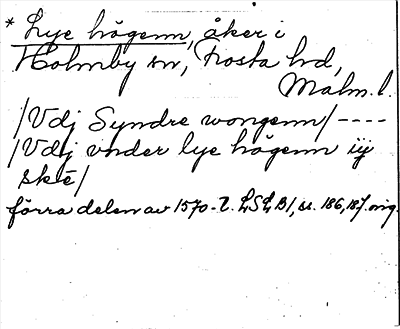 * Lye högenn, åker i
Holmby sn, Frosta hd,
Malm. l.
/Vdj Syndre wongenn/ ----
/Vdj vnder lye högenn iij
skē/
förra delen av 1570-t. LSLB1, ss. 186, 187. orig.